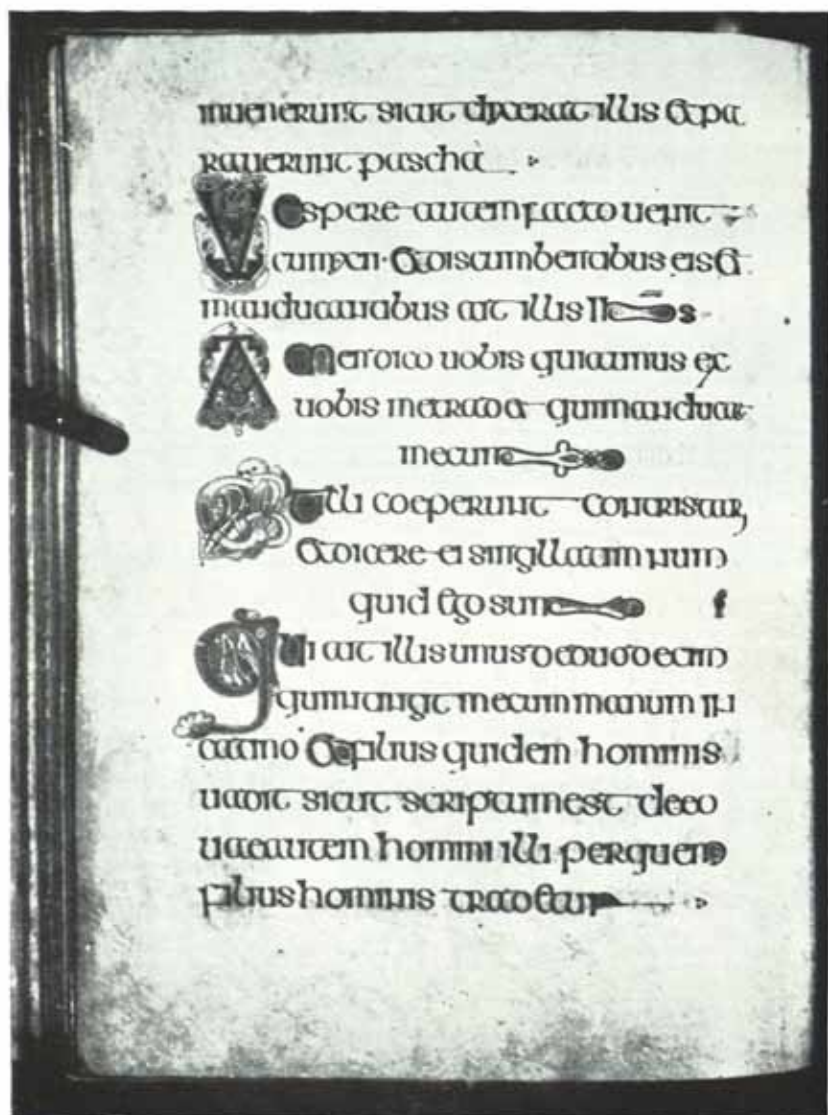 inuenerunt sicut dixerat illis & pa
rauerunt pascha
Vespere autem facto uenit
cum xii · Et discumbentibus eis &
manducantibus ait illis ihs
Amen dico uobis quia unus ex
uobis me tradet qui manducat
mecum
At illi coeperunt contristari
& dicere ei singillatim num
quid ego sum
Qui ait illis unus de duodecim
qui intingit mecum manum in
catino Et filius quidem hominis
uadit sicut scriptum est de eo
uae autem homini illi per quem
filius hominis tradetur